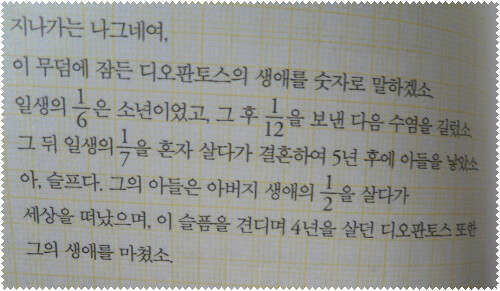 지나가는 나그네여,
이 무덤에 잠든 디오판토스의 생애를 숫자로 말하겠소
일생의 1/6은 소년이었고, 그 후 1/12을 보낸 다음 수염을 길렀소
그 뒤 일생의 1/7을 혼자 살다가 결혼하여 5년 후에 아들을 낳았소
아, 슬프다. 그의 아들은 아버지 생애의 1/2을 살다가
세상을 떠났으며, 이 슬픔을 견디며 4년을 살던 디오판토스 또한
그의 생애를 마쳤소.